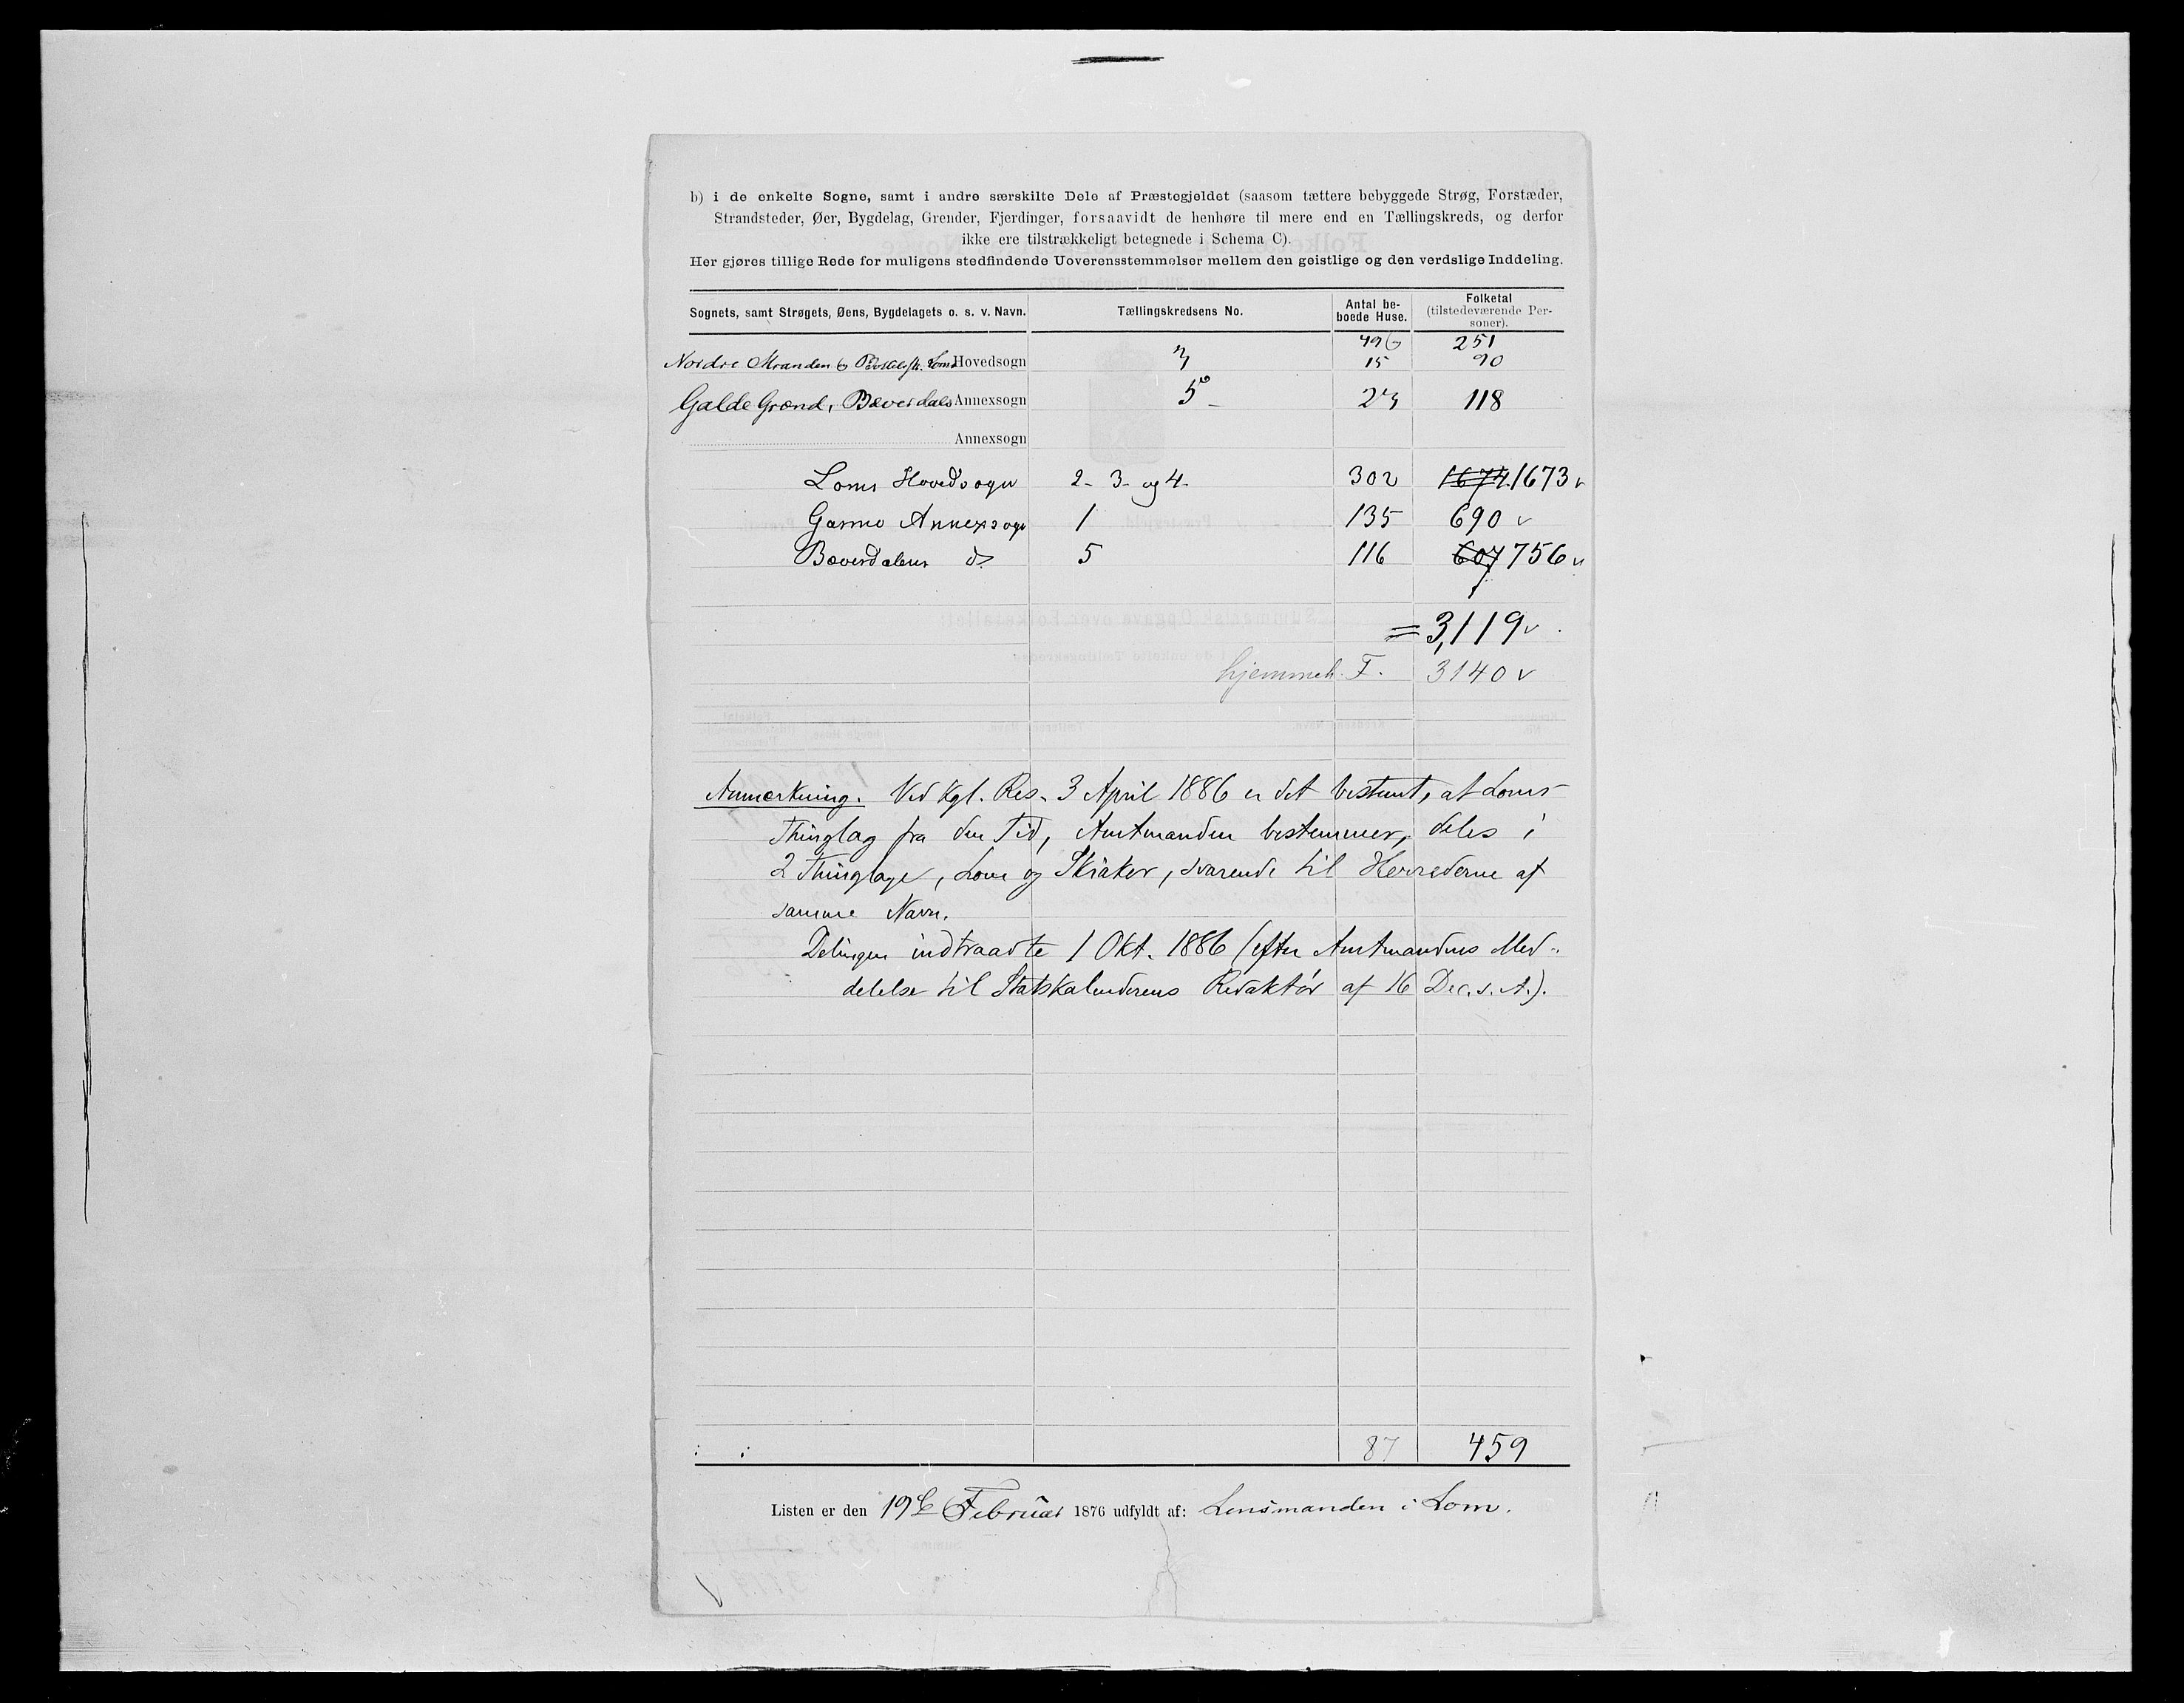 b) i de enkelte Sogne, samt i andre særskilte Dele af Præstegjeldet (saasom tættere bebyggede Strøg, Forstæder,
Strandsteder, Øer, Bygdelag, Grender, Fjerdinger, forsaavidt de henhøre til mere end en Tællingskreds, og derfor
ikke ere tilstrækkeligt betegnede i Schema C).
Her gjøres tillige Rede for muligens stedfindende Uoverensstemmelser mellem den geistlige og den verdslige Inddeling.
Sognets, samt Strøgets, Øens, Bygdelagets o. s. v. Navn. Tællingskredsens No. Antal be- boede Huse. Folketal (tilstedeværende Per- soner).
49 251
Nordre Stranden Loms Hovedsogn 3 15 90
Galde Grænd, Bæverdals Annexsogn 5 23 118
Annexsogn
Loms Hovedsogn 2- 3- og 4- 302 1674 1673 v
Garmo Annexsogn 1 135 690 v
Bæverdalens do. 5 116 607 756 v
= 3,119 v
hjemmeh. F. 3140 v
Anmærkning. Ved Kgl. Res. 3 April 1886 er det bestemt, at Loms
Thinglag fra den Tid, Amtmanden bestemmer, deles i
2 Thinglage, Lom og Skiaker, svarende til Herrederne af
samme Navn.
Delingen indtraadte 1 Okt. 1886 (efter Amtmandens Med-
delelse til Statskalenderens Redaktør af 16 Dec. s. A.).
87 459
Listen er den 19de Februar 1876 udfyldt af: Lensmanden i Lom.